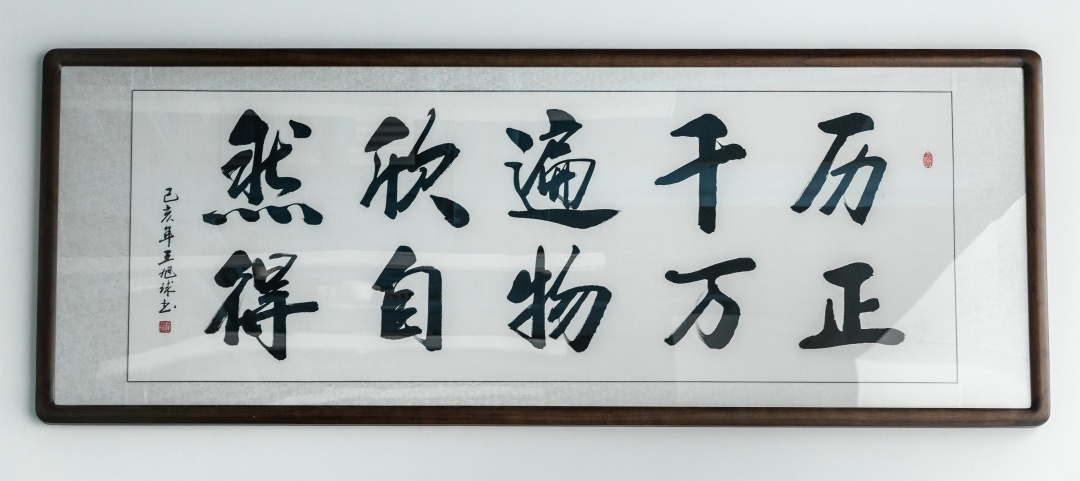 历正
千万
遍物
欣自
然得
己亥年王旭球书